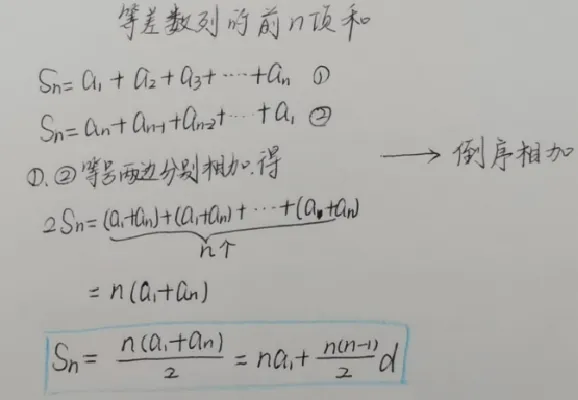 等差数列的前n项和
Sn=a₁+a₂+a₃+⋯+an ①
Sn=an+an-1+an-2+⋯+a₁ ②
①.②等号两边分别相加.得
→ 倒序相加
2Sn=(a₁+an)+(a₁+an)+⋯+(a₁+an)
n个
=n(a₁+an)
Sn=n(a₁+an)/2=na₁+n(n-1)/2 d